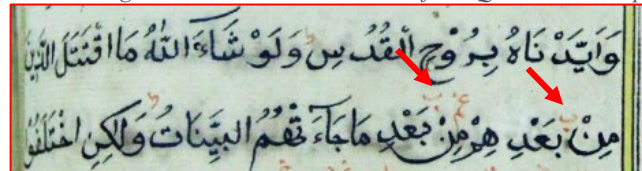 وَاَيَّدْنَاهُ بِرُوْحِ الْقُدُسِ وَلَوْ شَاءَ اللّٰهُ مَا اقْتَتَلَ الَّذِيْنَ
مِنْ بَعْدِ هِمْ مِنْ بَعْدِ مَا جَاءَ تْهُمُ الْبَيِّنَاتُ وَلٰكِنِ اخْتَلَفُوْا